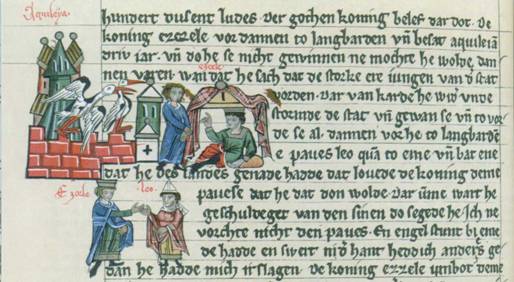 Aquileya.
hundert dusent ludes. Der gochen koning belef dar dot. De
koning ezzele vor dannen to langbarden vn̄ besat aquileiā
driv iar. vn̄ do he se nicht gewinnen ne mochte he wolde dan
nen varen wan dat he sach dat de storke ere iungen van d' stat
vorden. Dar van karde he wid' vnde
stormde de stat vn̄ gewan se vn̄ to vor
de se al. dannen vor he to langbardē
e paues leo quā to eme vn̄ bat ene
dat he des landes genade hadde dat louede de koning deme
leo.
pauese dat he dat don wolde. Dar ūme wart he
geschuldeget van den sinen do segde he. Ich ne
vorchte nicht den paues. En engel stunt bi eme
de hadde en swert hant heddich anders ge
dan he hadde mich irslagen. de koning ezzele unbot deme